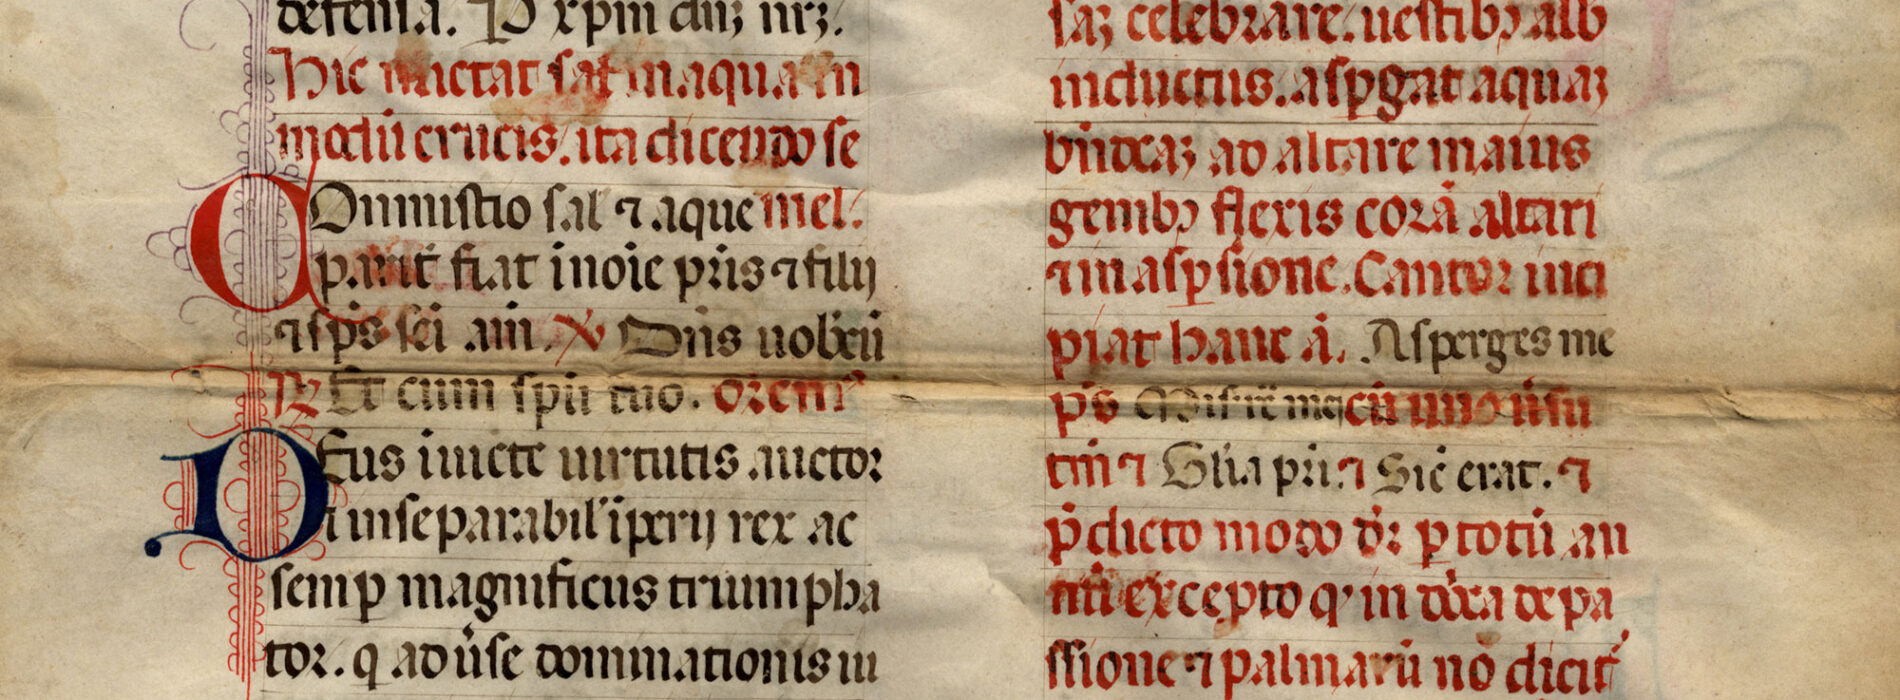 defensa. P xpm dnȝ nrȝ.
Hic mictat sal in aqua in
modū crucis. ita dicendo se
Ommistio sal ⁊ aque mel.
parit̄ fiat inoīe pr̄is ⁊ filij
⁊ sp̄s sc̄i am̄. ℣ Dn̄s uobcū
℟ Et cum spū tuo. orem
DEus inuicte uirtutis auctor
⁊ inseparabil' īperij rex ac
semp magnificus triumpha
tor. q aduˀse dominationis ui
saȝ celebrare. uestibꝰ alb
inductus. aspgat aquaȝ
bn̄dcaȝ ad altare maius
genibꝰ flexis corā altari
⁊ in aspsione. Cantor inci
piat hanc ā. Asperges me
p̄s Misēre mei cū uno uˀsu
tm̄ ⁊ Gl̓ia pri. ⁊ Sic̄ erat. ⁊
p̄dicto modo dr̄ p totū an
nū excepto q in dn̄ca de pa
ssione ⁊ palmarū nō dicit̓